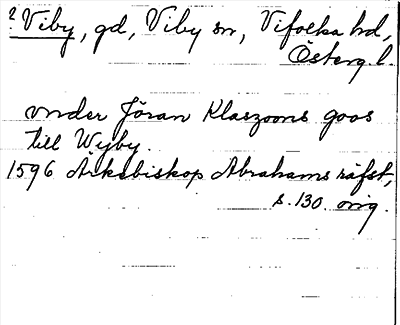 ? Viby, gd, Viby sn, Vifolka hd,
Österg l.
vnder Jöran Klaszoons goos
till Wÿby.
1596 Ärkebiskop Abrahams räfst,
s. 130. orig.